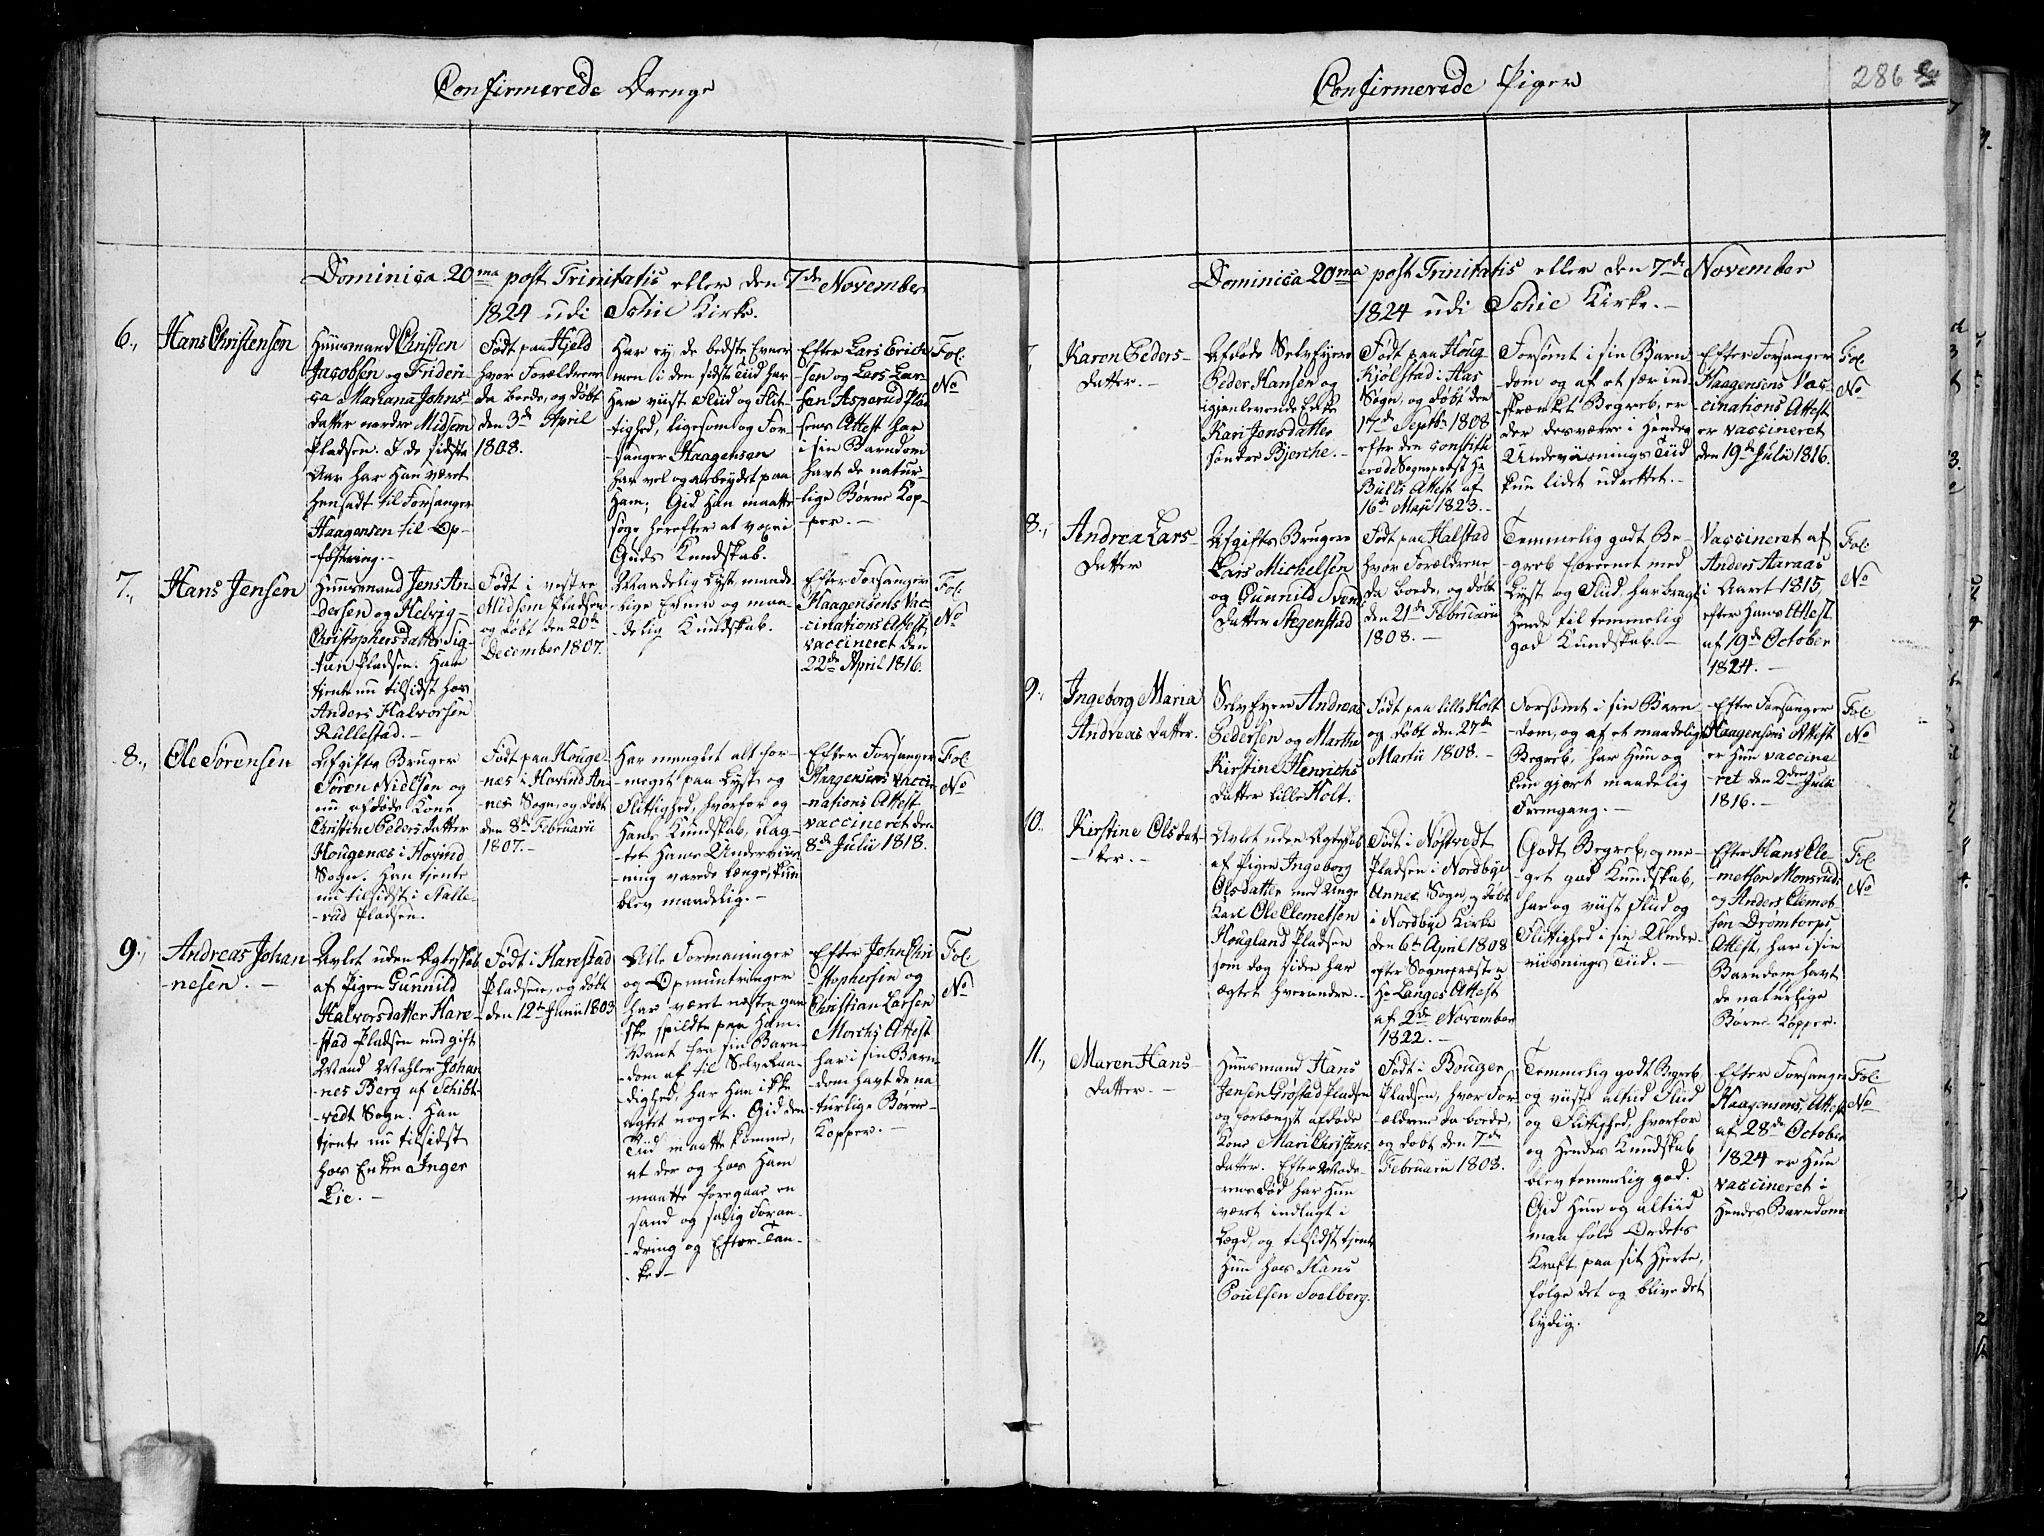 Confirmerede Drenge
Dominica 20ma post Trinitatis eller den 7de November
1824 udi Schie Kirke.
6., Hans Christensen
Huusmand Christen
Jacobsen og Frideri-
ca Mariana Johns-
datter nordre Midsem
Pladsen. I de sidste
Aar har Han været
hensadt til Forsanger
Haagensen til Op-
fostring.
Født paa Hjeld
hvor Forældrene
da boede, og døbt
den 3de April
1808.
Har ey de bedste Evner
men i den sidste Tiid har
Han viist Fliid og Flit-
tighed, ligesom og For-
sanger Haagensen
har vel og arbeydet paa
Ham; Gid Han maatte
søge herefter at voxe i
Guds Kundskab.
Efter Lars Erich-
sen og Lars Lar-
sen Asperud Plad
sens Attest har
i sin Barndom
havt de natur-
lige Børne Kop-
per. -
Fol.
No
7., Hans Jensen
Huusmand Jens An-
dersen og Helvig
Christophersdatter Sig-
tun Pladsen. Han
tjente nu tilsidst hos
Anders Halvorsen
Rullestad. -
Født i vestre
Midsem Pladsen
og døbt den 20de
December 1807.
Maadelig Lyst, maade-
lige Evner og maa-
delig Kundskab.
Efter Forsanger
Haagensens Vac-
cinations Attest,
vaccineret den
22de April 1816.
Fol.
No
8., Ole Sørensen
Afgifts Bruger
Søren Nielsen og
nu afdøde Kone
Christine Pedersdatter
Hougenæs i Hovind
Sogn. Han tjente
nu tilsidst i Nalle-
rud Pladsen.
Født paa Houge-
næs i Hovind An-
nex Sogn, og døbt
den 8de Februarii
1807. -
Har manglet alt for
meget paa Lyst og
Flittighed, hvorfor og
Hans Kundskab, uag-
tet Hans Underviis-
ning varede længe, kun
blev maadelig. -
Efter Forsanger
Haagensens Vacci-
nations Attest
vaccineret den
8de Julii 1818.
Fol.
No
9., Andreas Johan
-nesen. -
Avlet uden Ægteskab
af Pigen Gunnild
Halvorsdatter Hare-
stad Pladsen med gift
Mand Mahler Johan-
nes Berg af Schibt-
vedt Sogn. Han
tjente nu tilsidst
hos Enken Inger
Lie. -
Født i Harestad
Pladsen, og døbt
den 12te Junii 1803
Alle Formaninger
og Opmuntringer
har været næsten gan-
ske spildte paa Ham.
Vant fra sin Barn-
dom af til Selvraa-
dighed, har Han ikke
agtet noget. Gid den
Tiid maatte komme,
at der og hos Ham
maatte foregaae en
sand og salig Foran-
dring og Efter-Tan-
ke! -
Efter John Chri
stophersen og
Christian Larsen
Morchs Attest
har i sin Barn-
dom havt de na-
turlige Børne-
Kopper. -
Fol.
No
Confirmerede Piger
286
Dominica 20ma post Trinitatis eller den 7de November
1824 udi Schie Kirke. -
7., Karen Peders-
datter. -
Afdøde Selv Eyere
Peder Hansen og
igjenlevende Enke
Kari Jonsdatter
søndre Bjerche. -
Født paa Houg-
Kjølstad i Aas
Sogn, og døbt den
17de Septbr 1808
efter den constitu
erede Sognepræst Hr
Bulls Attest af
16de Maji 1823. -
Forsømt i sin Barn
-dom og af et særind-
skrænket Begreb, er
der desværre i Hendes
Underviisnings Tiid
kun lidet udrettet. -
Efter Forsanger
Haagensens Vac-
cinations Attest
er vaccineret
den 19de Julii 1816.
Fol.
No
8., Andrea Lars-
datter
Afgifts Bruger
Lars Michelsen
og Gunnild Svens
datter Stegenstad
Født paa Halstad
hvor Forældrene
da boede, og døbt
den 21de Februarii
1808. -
Temmelig godt Be-
greb foreenet med
Lyst og Fliid, har bragt
Hende til temmelig
god Kundskab. -
Vaccineret af
Anders Aaraas
i Aaret 1815,
efter Hans Attest
af 19de October
1824. -
Fol.
No
9., Ingeborg Maria
Andreasdatter.
Selv Eyer Andreas
Pedersen og Marthe
Kirstine Henrichs
datter lille Holt.
Født paa lille Holt
og døbt den 27de
Martii 1808. -
Forsømt i sin Barn
-dom, og af et maadeligt
Begreb, har Hun og
kun gjort maadelig
Fremgang. -
Efter Forsanger
Haagensens Attest
er Hun vaccine
-ret den 2den Julii
1816. -
Fol.
No
10., Kirstine Olsdat-
ter. -
Avlet uden Ægteskab
af Pigen Ingeborg
Olsdatter med Unge
Karl Ole Clemetsen
Hougland Pladsen
som dog siden har
ægtet hverandre. -
Født i Nøstvedt
Pladsen i Nordbye
Annex Sogn, og døbt
i Nordbye Kirke
den 6te April 1808
efter Sognepræsten
Hr Langes Attest
af 2de November
1822. -
Godt Begreb, og me-
get god Kundskab,
har og viist Fliid og
Flittighed i sin Under-
viisnings Tiid. -
Efter Hans Cle-
metsen Monsrud
og Anders Clemet-
sen Drømtorps
Attest, har i sin
Barndom havt
de naturlige
Børne-Kopper.
Fol.
No
11., Maren Hans-
datter. -
Huusmand Hans
Jensen Grøstad Pladsen
og forlængst afdøde
Kone Mari Christens-
datter. Efter Mode-
rens Død har Hun
været indlagt i
Lægd, og tilsidst tjent
Hun hos Hans
Poulsen Soelberg.
Født i Bouger
Pladsen, hvor For-
ældrene da boede,
og døbt den 7de
Februarii 1808.
Temmelig godt Begreb,
og viiste altid Fliid
og Flittighed, hvorfor
og Hendes Kundskab
blev temmelig god.
Gid Hun og altiid
maa føle Ordets
Kraft paa sit Hjerte,
følge det og blive det
lydig.
Efter Forsanger
Haagensens Attest
af 28de October
1824 er Hun
vaccineret i
Hendes Barndom
Fol.
No